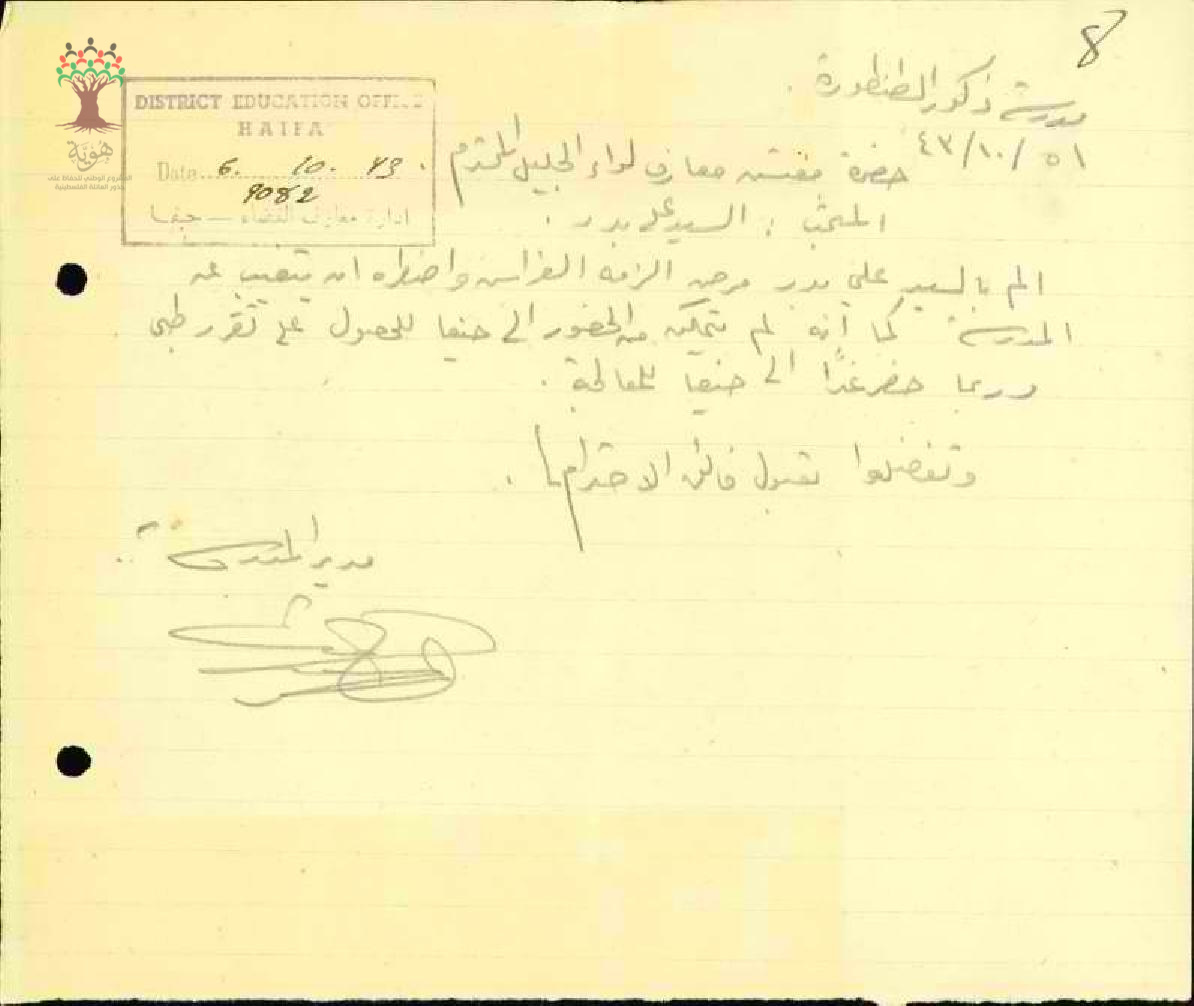 8
مدرسة ذكور الطنطورة
٥١ /١٠/ ٤٣
DISTRICT EDUCATION OFFICE
HAIFA
Date 6. 10. 43
9082
ادارة معارف القضاء — حيفا
هُوِيَّة
المشروع الوطني للحفاظ على
جذور العائلة الفلسطينية
حضرة مفتش معارف لواء الجليل المحترم .
المبحث : السيد علي بدر .
الم بالسيد علي بدر مرض الزمه الفراش واضطره ان يتغيب عن
المدرسة كما أنه لم يتمكن من الحضور الى حيفا للحصول على تقرر طبي
وربما حضر غدًا الى حيفا للمعالجة .
وتفضلوا بقبول فائق الاحترام .
مدير المدرسة